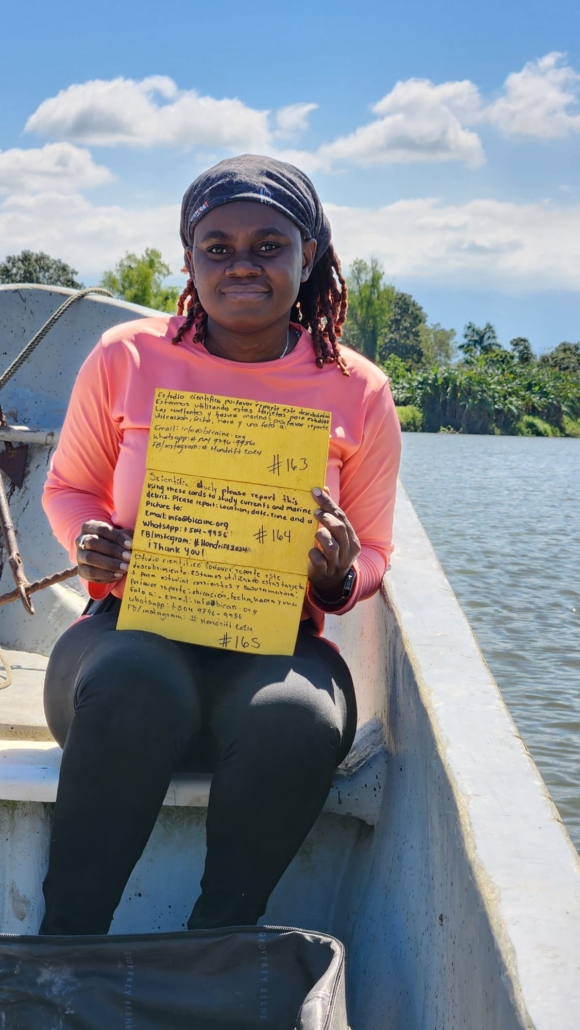 Estudio científico porfavor reporte este descubrimiento
Estamos utilizando estas tarjetas para estudiar
las corrientes y basura marina. porfavor reporte
ubicacion, fecha, hora y una foto a:
Email: info@bicaine.org
Whatsapp: +504 9796-9956
FB/Instagram: # Hondrift 2024
#163
Scientific study please report this
using these cards to study currents and marine
debris. Please report: Location, date, time and a
Picture to:
Email: info@bicaine.org
WhatsApp: +504-9956
FB/Instagram: #Hondrift2024
¡Thank you!
#164
Estudio cientifico Porfavor reporte este
descubrimiento. Estamos utilizando estas tarjetas
para estudiar corrientes y basura marina.
Porfavor reporte: ubicacion, fecha, hora y una
foto a: email: info@bican.org
whatsapp: +504 9796-9956
FB/instagram: # Hondrift 2024
#165